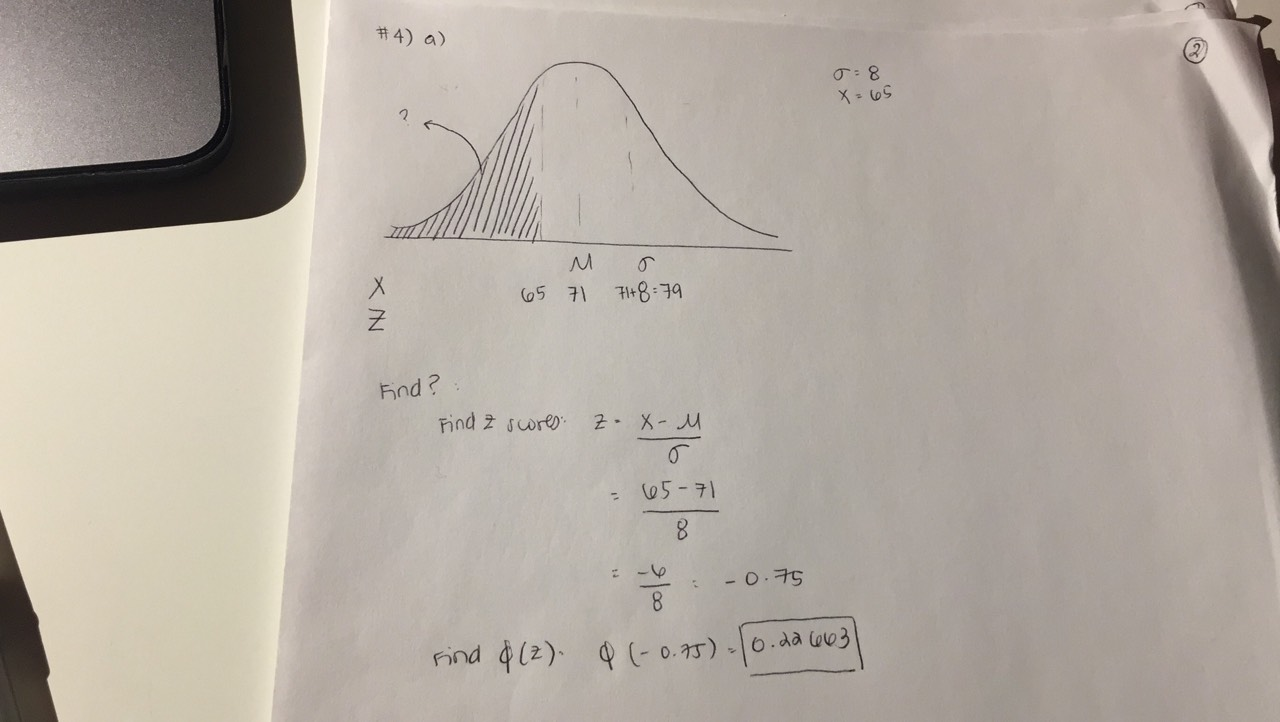 #4) a)
②
σ = 8
X = 65
?
M σ
X 65 71 71+8=79
Z
Find? :
Find z scores: z = X - M / σ
= 65 - 71 / 8
= -6 / 8 = -0.75
Find ϕ(z). ϕ(-0.75) = 0.22663